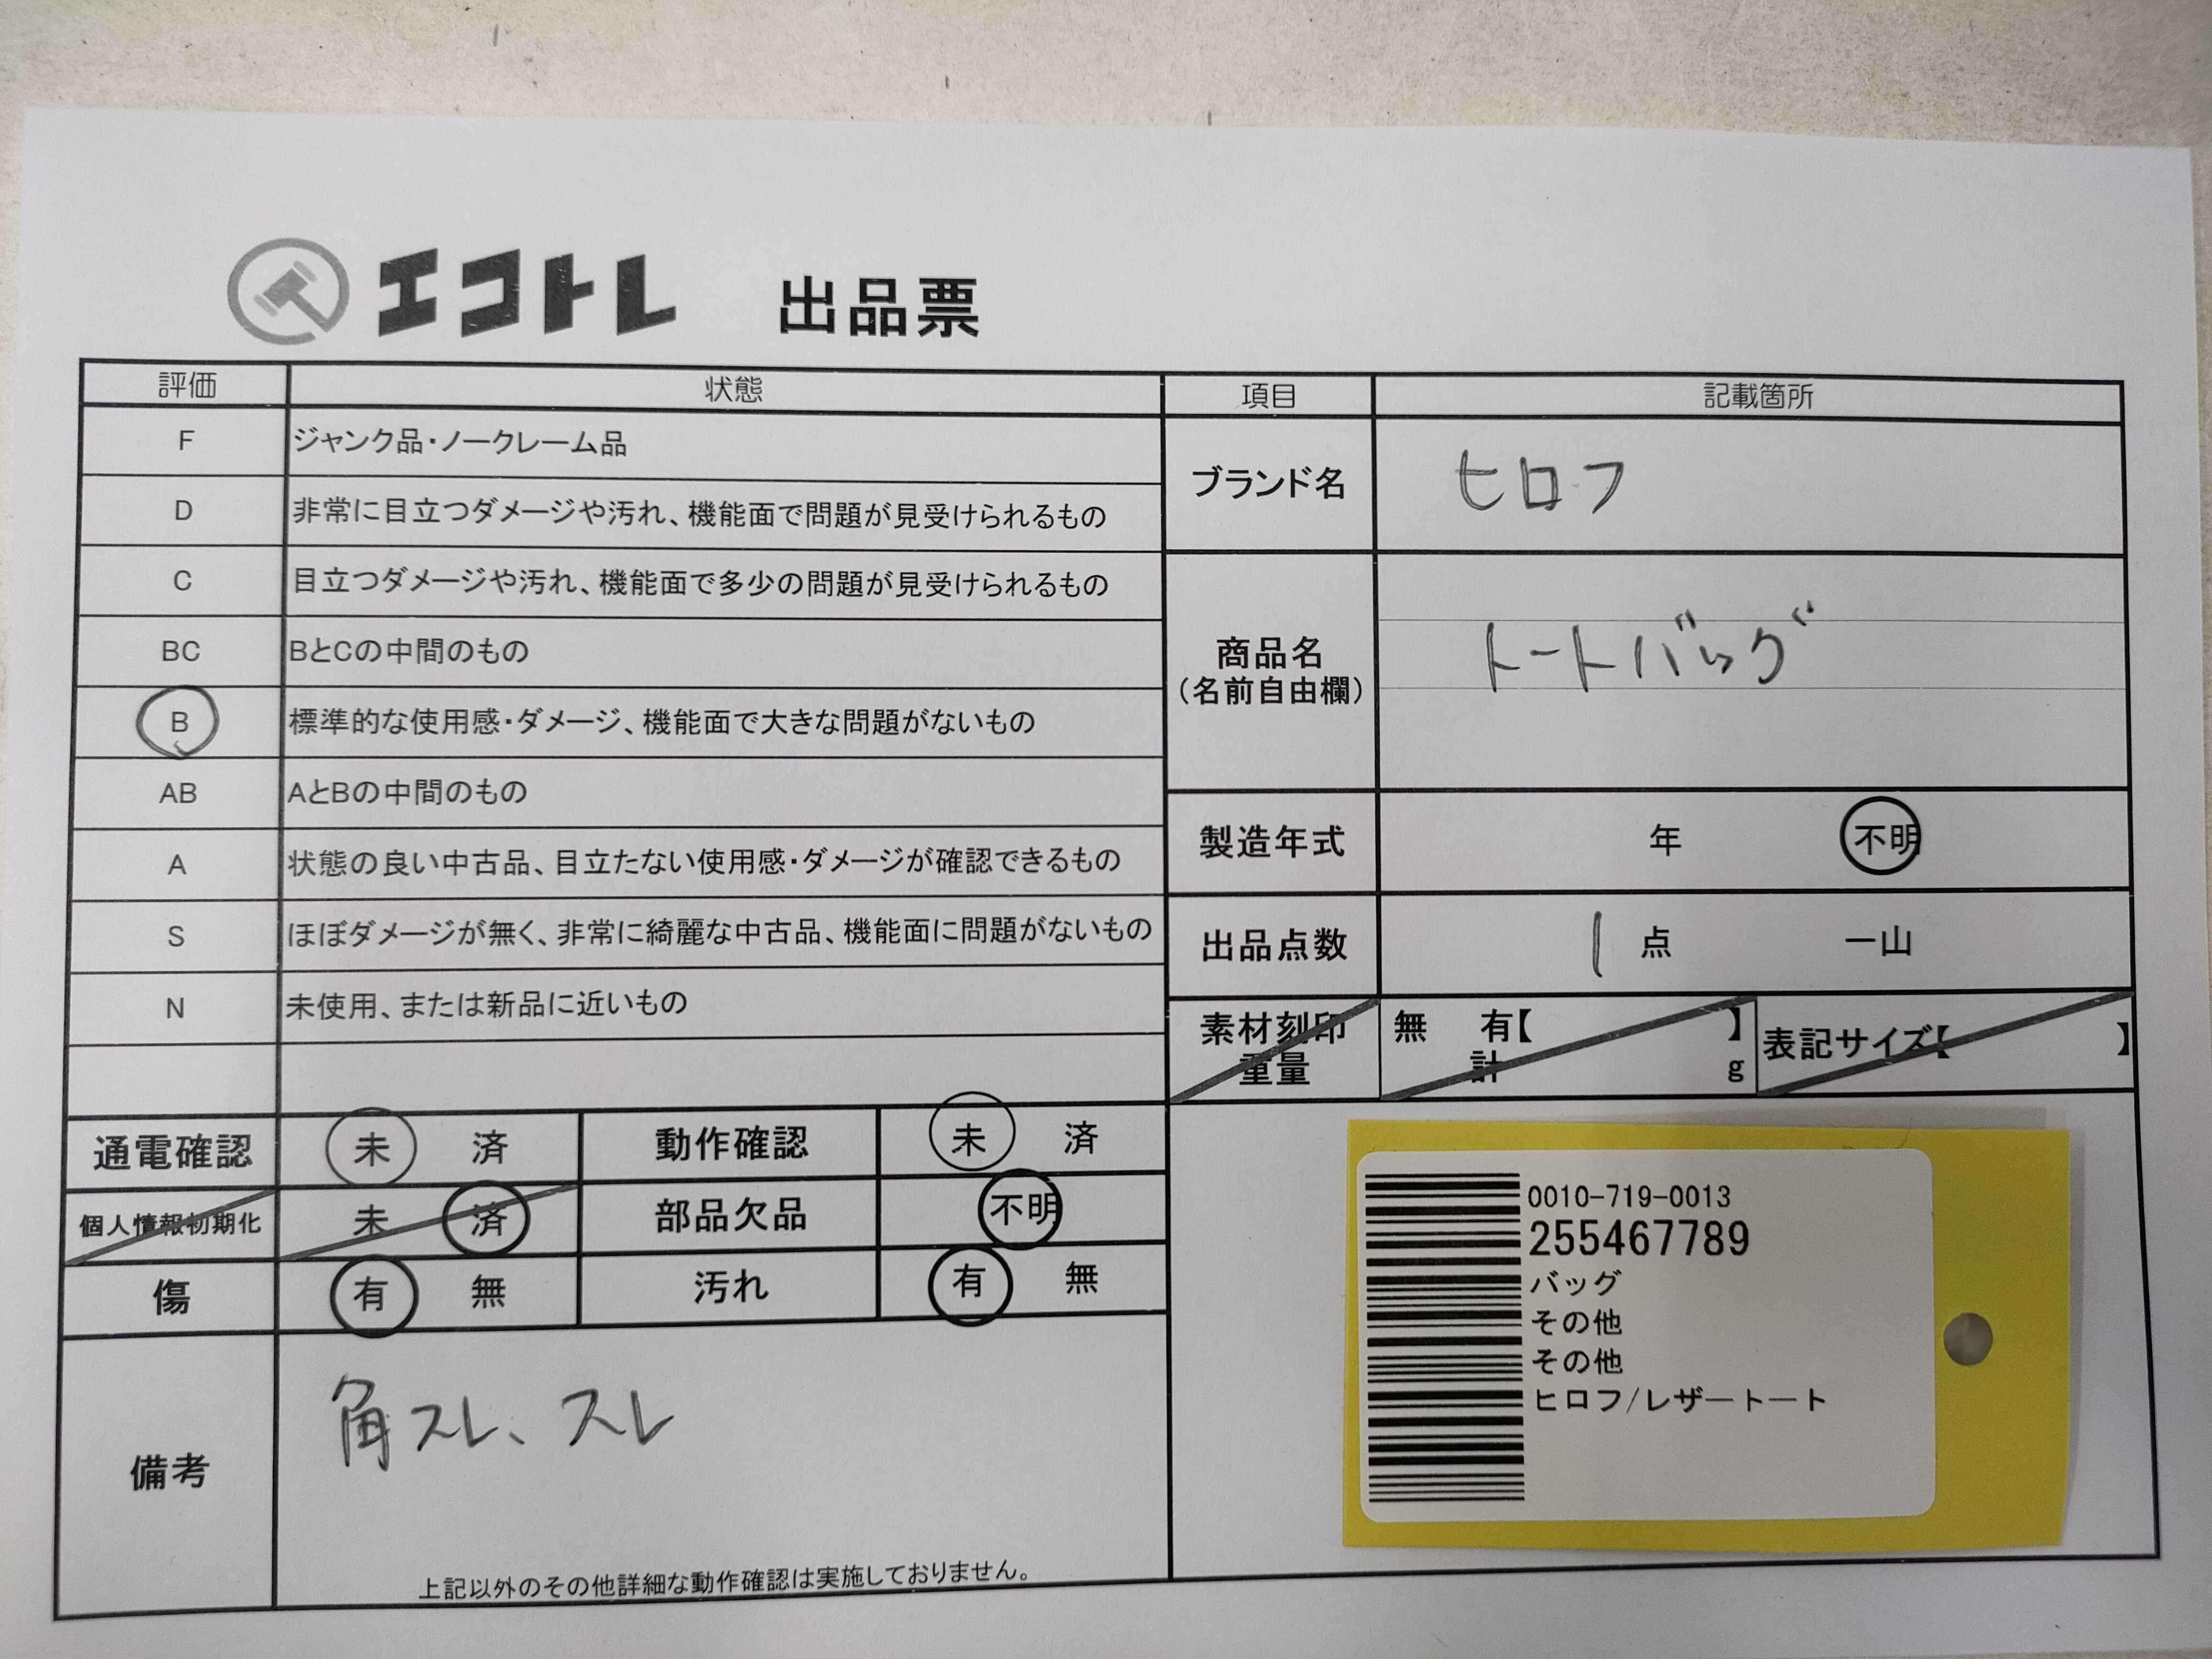 エコトレ 出品票
評価 状態
F ジャンク品・ノークレーム品
D 非常に目立つダメージや汚れ、機能面で問題が見受けられるもの
C 目立つダメージや汚れ、機能面で多少の問題が見受けられるもの
BC BとCの中間のもの
B 標準的な使用感・ダメージ、機能面で大きな問題がないもの
AB AとBの中間のもの
A 状態の良い中古品、目立たない使用感・ダメージが確認できるもの
S ほぼダメージが無く、非常に綺麗な中古品、機能面に問題がないもの
N 未使用、または新品に近いもの
通電確認 未 済 動作確認 未 済
個人情報初期化 未 済 部品欠品 不明
傷 有 無 汚れ 有 無
備考 角スレ、スレ
上記以外のその他詳細な動作確認は実施しておりません。
項目 記載箇所
ブランド名 ヒロフ
商品名
(名前自由欄)
トートバッグ
製造年式 年 不明
出品点数 1 点 一山
素材刻印 無 有【 】
重量 計 g
表記サイズ【 】
0010-719-0013
255467789
バッグ
その他
その他
ヒロフ/レザートート